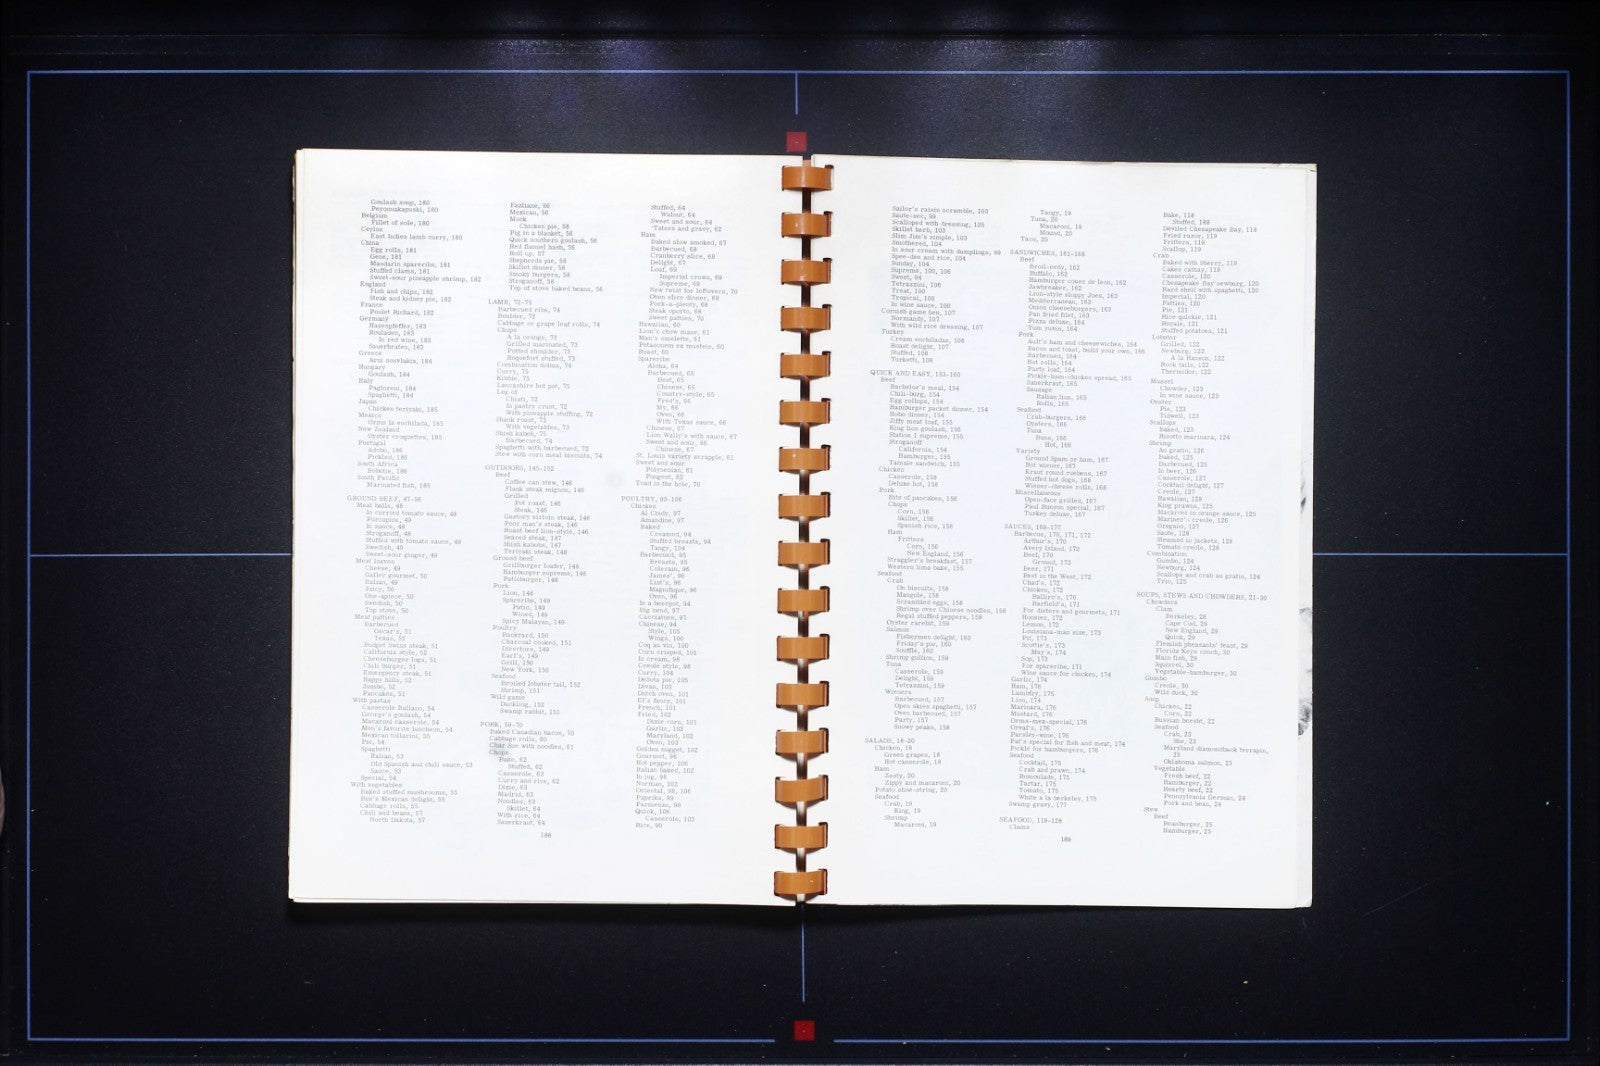 Goulash soup, 180
Peyonnakapuski, 180
Belgium
Fillet of sole, 180
Ceylon
East Indies lamb curry, 180
China
Egg rolls, 181
Gene, 181
Mandarin spareribs, 181
Stuffed clams, 181
Sweet-sour pineapple shrimp, 182
England
Fish and chips, 182
Steak and kidney pie, 182
France
Poulet Richard, 182
Germany
Hasenpfeffer, 183
Rouladen, 183
In red wine, 183
Sauerbraten, 183
Greece
Arni souvlakia, 184
Hungary
Goulash, 184
Italy
Pagloresi, 184
Spaghetti, 184
Japan
Chicken teriyaki, 185
Mexico
Orms la enchilada, 185
New Zealand
Oyster croquettes, 185
Portugal
Adobo, 186
Pickled, 186
South Africa
Bobotie, 186
South Pacific
Marinated fish, 185
GROUND BEEF, 47-56
Meat balls, 48
In curried tomato sauce, 48
Porcupine, 49
In sauce, 48
Stroganoff, 48
Stuffed with tomato sauce, 49
Swedish, 49
Sweet-sour ginger, 49
Meat loaves
Cheese, 49
Galley gourmet, 50
Italian, 49
Juicy, 50
One-apiece, 50
Swedish, 50
Top stove, 50
Meat patties
Barbecued
Oscar's, 51
Texas, 52
Budget Swiss steak, 51
California style, 52
Cheeseburger logs, 51
Chili burger, 51
Emergency steak, 51
Happy hills, 52
Jumbo, 52
Pancakes, 51
With pastas
Casserole Italiano, 54
George's goulash, 54
Macaroni casserole, 54
Men's favorite luncheon, 54
Mexican tallarini, 55
Pie, 54
Spaghetti
Italian, 53
Old Spanish and chili sauce, 53
Sauce, 53
Special, 54
With vegetables
Baked stuffed mushrooms, 55
Bun's Mexican delight, 55
Cabbage rolls, 55
Chili and beans, 57
North Dakota, 57
Pagliane, 56
Mexican, 56
Mock
Chicken pie, 58
Pig in a blanket, 56
Quick southern goulash, 56
Red flannel hash, 56
Roll up, 57
Shepherds pie, 58
Skillet dinner, 58
Smoky burgers, 58
Stroganoff, 58
Top of stove baked beans, 56
LAMB, 72-75
Barbecued ribs, 74
Boulder, 72
Cabbage or grape leaf rolls, 74
Chops
A la orange, 73
Grilled marinated, 73
Potted shoulder, 73
Roquefort stuffed, 73
Combination dolma, 74
Curry, 75
Kibbie, 75
Lancashire hot pot, 75
Leg of
Chisti, 72
In pastry crust, 72
With pineapple stuffing, 72
Shank roast, 73
With vegetables, 73
Shish kabob, 75
Barbecued, 74
Spaghetti with barbecued, 72
Stew with corn meal biscuits, 74
OUTDOORS, 145-152
Beef
Coffee can stew, 146
Flank steak mignon, 146
Grilled
Pot roast, 146
Steak, 146
Gustory sirloin steak, 146
Poor man's steak, 146
Roast beef lion-style, 146
Seared steak, 147
Shish kabobs, 147
Teriyaki steak, 148
Ground beef
Grillburger loafer, 148
Hamburger supreme, 148
Patioburger, 148
Pork
Lion, 148
Spareribs, 149
Patio, 149
Wined, 149
Spicy Malayan, 149
Poultry
Backyard, 150
Charcoal cooked, 151
Directors, 149
Earl's, 149
Grill, 150
New York, 150
Seafood
Broiled lobster tail, 152
Shrimp, 151
Wild game
Duckling, 152
Swamp rabbit, 151
PORK, 59-70
Baked Canadian bacon, 70
Cabbage rolls, 60
Char Sue with noodles, 61
Chops
Bake, 62
Stuffed, 62
Casserole, 63
Curry and rice, 62
Dixie, 63
Madrid, 63
Noodles, 63
Skillet, 64
With rice, 64
Sauerkraut, 64
188
Stuffed, 64
Walnut, 64
Sweet and sour, 64
'Taters and gravy, 62
Ham
Baked slow smoked, 67
Barbecued, 68
Cranberry slice, 68
Delight, 67
Loaf, 69
Imperial crown, 69
Supreme, 69
New twist for leftovers, 70
Oven slice dinner, 68
Pork-a-plenty, 68
Steak oporto, 68
Sweet patties, 70
Hawaiian, 60
Lion's chow maze, 61
Man's omelette, 61
Petasonem ex musteis, 60
Roast, 60
Spareribs
Aloha, 64
Barbecued, 65
Best, 65
Chinese, 65
Country-style, 65
Fred's, 66
My, 66
Oven, 66
With Texas sauce, 66
Chinese, 67
Lion Wally's with sauce, 67
Sweet and sour, 66
Chinese, 67
St. Louis variety scrapple, 61
Sweet and sour
Polynesian, 61
Pungent, 62
Toad in the hole, 70
POULTRY, 93-106
Chicken
Al Cindy, 97
Amandine, 97
Baked
Creamed, 94
Stuffed breasts, 94
Tangy, 104
Barbecued, 95
Breasts, 95
Colerain, 96
James', 96
List's, 96
Magnifique, 96
Oven, 96
In a beerpot, 94
Big bend, 97
Cacciatore, 97
Chinese, 94
Style, 105
Wings, 100
Coq au vin, 100
Corn crisped, 101
In cream, 98
Creole style, 98
Curry, 104
DeSota pie, 105
Divan, 105
Dutch oven, 101
El's fancy, 101
French, 101
Fried, 102
Dixie corn, 101
Garlic, 102
Maryland, 102
Oven, 103
Golden nugget, 102
Gourmet, 98
Hot pepper, 106
Italian baked, 102
In jug, 98
Norman, 102
Oriental, 98, 106
Paprika, 99
Parmesan, 99
Quick, 106
Casserole, 103
Rice, 99
Sailor's raisin scramble, 103
Saute-sec, 99
Scalloped with dressing, 105
Skillet herb, 103
Slim Jim's simple, 103
Smothered, 104
In sour cream with dumplings, 99
Spee-dee and rice, 104
Sunday, 104
Supreme, 100, 106
Sweet, 94
Tetrazzini, 106
Treat, 100
Tropical, 106
In wine sauce, 100
Cornish game hen, 107
Normandy, 107
With wild rice dressing, 107
Turkey
Cream enchiladas, 108
Roast delight, 107
Stuffed, 108
Turketti, 108
QUICK AND EASY, 153-160
Beef
Bachelor's meal, 154
Chili-burg, 154
Egg rollups, 154
Hamburger packet dinner, 154
Hobo dinner, 154
Jiffy meat loaf, 155
King lion goulash, 156
Station 1 supreme, 155
Stroganoff
California, 154
Hamburger, 155
Tamale sandwich, 155
Chicken
Casserole, 158
Deluxe hot, 158
Pork
Bits of pancakes, 156
Chops
Corn, 156
Skillet, 156
Spanish rice, 156
Ham
Fritters
Corn, 156
New England, 156
Straggler's breakfast, 157
Western lima bake, 155
Seafood
Crab
On biscuits, 158
Mangole, 158
Scrambled eggs, 158
Shrimp over Chinese noodles, 158
Regal stuffed peppers, 158
Oyster rarebit, 159
Salmon
Fishermen delight, 160
Friday's pie, 160
Souffle, 160
Shrimp gullion, 159
Tuna
Casserole, 159
Delight, 159
Tetrazzini, 159
Wieners
Barbecued, 157
Open skies spaghetti, 157
Oven barbecued, 157
Party, 157
Snowy peaks, 158
SALADS, 18-20
Chicken, 18
Green grapes, 18
Hot casserole, 18
Ham
Zesty, 20
Zippy and macaroni, 20
Potato shoe-string, 20
Seafood
Crab, 19
King, 19
Shrimp
Macaroni, 19
Tangy, 19
Tuna, 20
Macaroni, 19
Mound, 20
Taco, 20
SANDWICHES, 161-168
Beef
Broil-eezy, 162
Buffalo, 162
Hamburger couer de leon, 162
Jawbreaker, 162
Lion-style sloppy Joes, 163
Mediterranean, 163
Onion cheeseburgers, 163
Pan fried filet, 163
Pizza deluxe, 164
Yum yums, 164
Pork
Ault's ham and cheesewiches, 164
Bacon and toast, build your own, 166
Barbecued, 164
Hot rolls, 164
Party loaf, 164
Pickle-ham-chicken spread, 165
Sauerkraut, 165
Sausage
Italian lion, 165
Rolls, 165
Seafood
Crab-burgers, 166
Oysters, 166
Tuna
Buns, 166
Hot, 166
Variety
Ground Spam or ham, 167
Hot wiener, 167
Kraut round ruebens, 167
Stuffed hot dogs, 168
Wiener-cheese rolls, 168
Miscellaneous
Open-face grilled, 167
Paul Bunyon special, 167
Turkey deluxe, 167
SAUCES, 169-177
Barbecue, 170, 171, 172
Arthur's, 170
Avery Island, 170
Beef, 170
Ground, 173
Beer, 171
Best in the West, 172
Chad's, 172
Chicken, 172
Balliro's, 170
Barfield's, 171
For dieters and gourmets, 171
Hoosier, 172
Lemon, 172
Louisiana-man size, 173
Pit, 173
Scottie's, 173
May's, 174
Sop, 173
For spareribs, 171
Wine sauce for chicken, 174
Garlic, 174
Ham, 176
Lambfry, 175
Lion, 174
Marinara, 176
Mustard, 176
Orma-mex-special, 176
Oreal's, 176
Parsley-wine, 176
Pat's special for fish and meat, 174
Pickle for hamburgers, 176
Seafood
Cocktail, 175
Crab and prawn, 174
Remoulade, 175
Tartar, 175
Tomato, 175
White a la berkeley, 175
Swamp gravy, 177
SEAFOOD, 118-128
Clams
189
Bake, 118
Stuffed, 188
Deviled Chesapeake Bay, 118
Fried razor, 119
Fritters, 119
Scallop, 119
Crab
Baked with Sherry, 119
Cakes cathay, 119
Casserole, 120
Chesapeake Bay newburg, 120
Hard shell with spaghetti, 120
Imperial, 120
Patties, 120
Pie, 121
Rice quickie, 121
Royale, 121
Stuffed potatoes, 121
Lobster
Grilled, 122
Newburg, 122
A la Hanson, 122
Rock tails, 122
Thermidor, 122
Mussel
Chowder, 123
In wine sauce, 123
Oyster
Pie, 123
Tidwell, 123
Scallops
Baked, 123
Risotto marinara, 124
Shrimp
Au gratin, 126
Baked, 125
Barbecued, 125
In beer, 126
Casserole, 127
Cocktail delight, 127
Creole, 127
Hawaiian, 128
King prawns, 125
Macaroni in orange sauce, 125
Mariner's creole, 126
Oregano, 127
Saute, 128
Steamed in jackets, 128
Tomato creole, 128
Combination
Gumbo, 124
Newburg, 124
Scallops and crab au gratin, 124
Trio, 125
SOUPS, STEWS AND CHOWDERS, 21-30
Chowders
Clam
Berkeley, 28
Cape Cod, 29
New England, 29
Quick, 29
Flemish pheasants' feast, 29
Florida Keys conch, 30
Main-fish, 29
Squirrel, 30
Vegetable-hamburger, 30
Gumbo
Creole, 30
Wild duck, 30
Soup
Chicken, 22
Corn, 22
Russian borsht, 22
Seafood
Crab, 23
She, 23
Maryland diamondback terrapin,
23
Oklahoma salmon, 23
Vegetable
Fresh beef, 22
Hamburger, 22
Hearty beef, 22
Pennsylvania German, 24
Pork and bean, 24
Stew
Beef
Beanburger, 25
Hamburger, 25